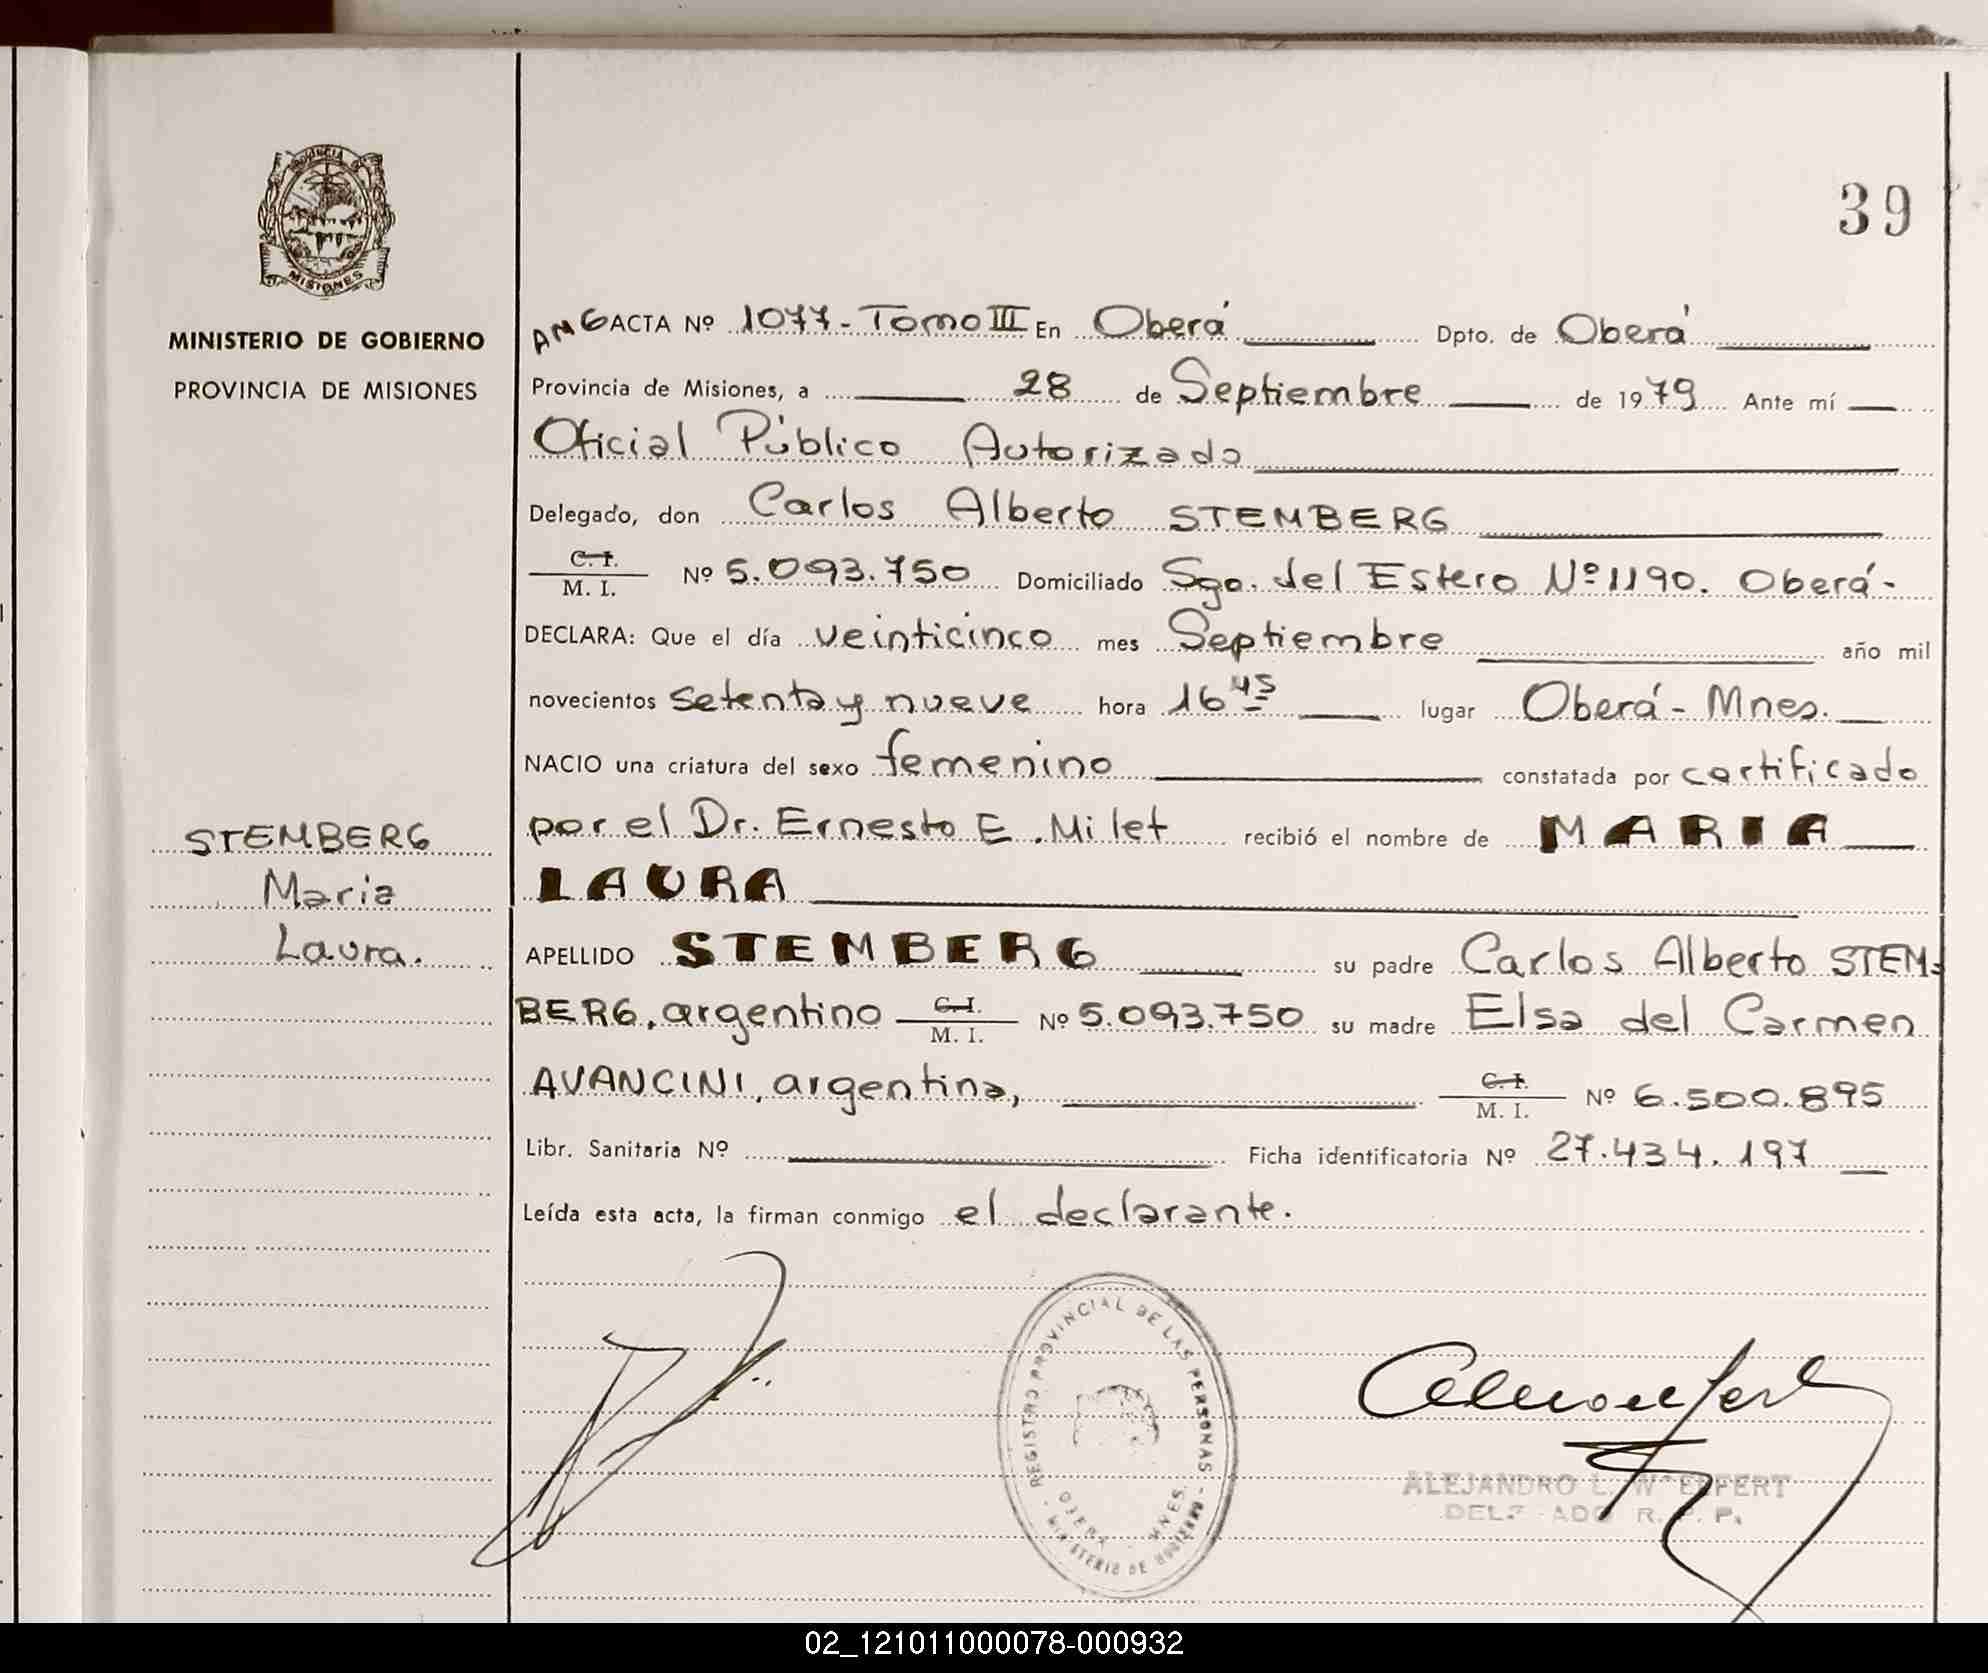 39
PROVINCIA DE
MISIONES
MINISTERIO DE GOBIERNO
PROVINCIA DE MISIONES
STEMBERG
Maria
Laura.
AMG ACTA Nº 1077 - Tomo III En Oberá Dpto. de Oberá
Provincia de Misiones, a 28 de Septiembre de 1979 Ante mí
Oficial Público Autorizado
Delegado, don Carlos Alberto STEMBERG
C. I.
M. I. Nº 5.093.750 Domiciliado Sgo. del Estero Nº 1190. Oberá-
DECLARA: Que el día veinticinco mes Septiembre año mil
novecientos setenta y nueve hora 16 45 lugar Oberá - Mnes.
NACIO una criatura del sexo femenino constatada por certificado
por el Dr. Ernesto E. Milet recibió el nombre de MARIA
LAURA
APELLIDO STEMBERG su padre Carlos Alberto STEM-
BERG, argentino C. I. M. I. Nº 5.093.750 su madre Elsa del Carmen
AVANCINI, argentina, C. I. M. I. Nº 6.500.895
Libr. Sanitaria Nº Ficha identificatoria Nº 27.434.197
Leída esta acta, la firman conmigo el declarante.
REGISTRO PROVINCIAL DE LAS PERSONAS - MINISTERIO DE GOBIERNO -
OBERA MNES.
ALEJANDRO L.
R. P. P.
02_121011000078-000932